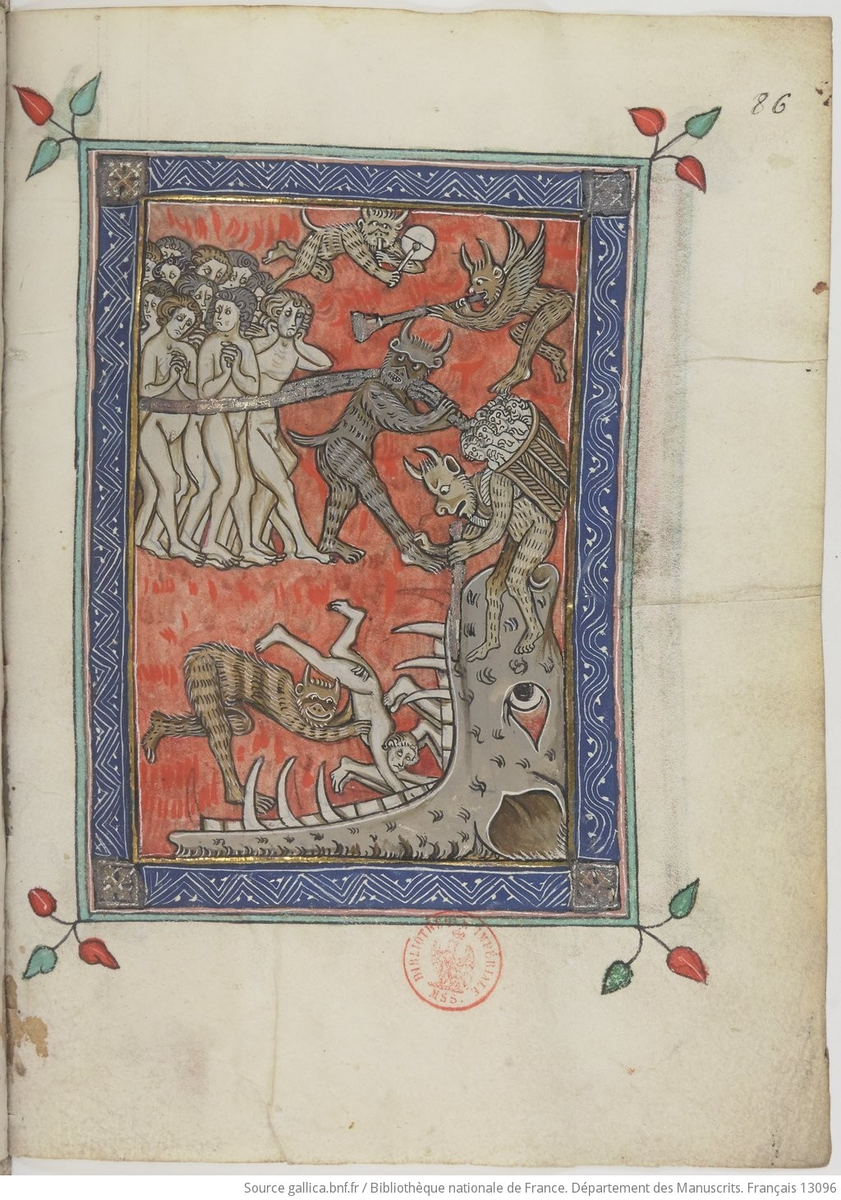 86
BIBLIOTHÈQUE IMPÉRIALE
MSS.
Source gallica.bnf.fr / Bibliothèque nationale de France. Département des Manuscrits. Français 13096